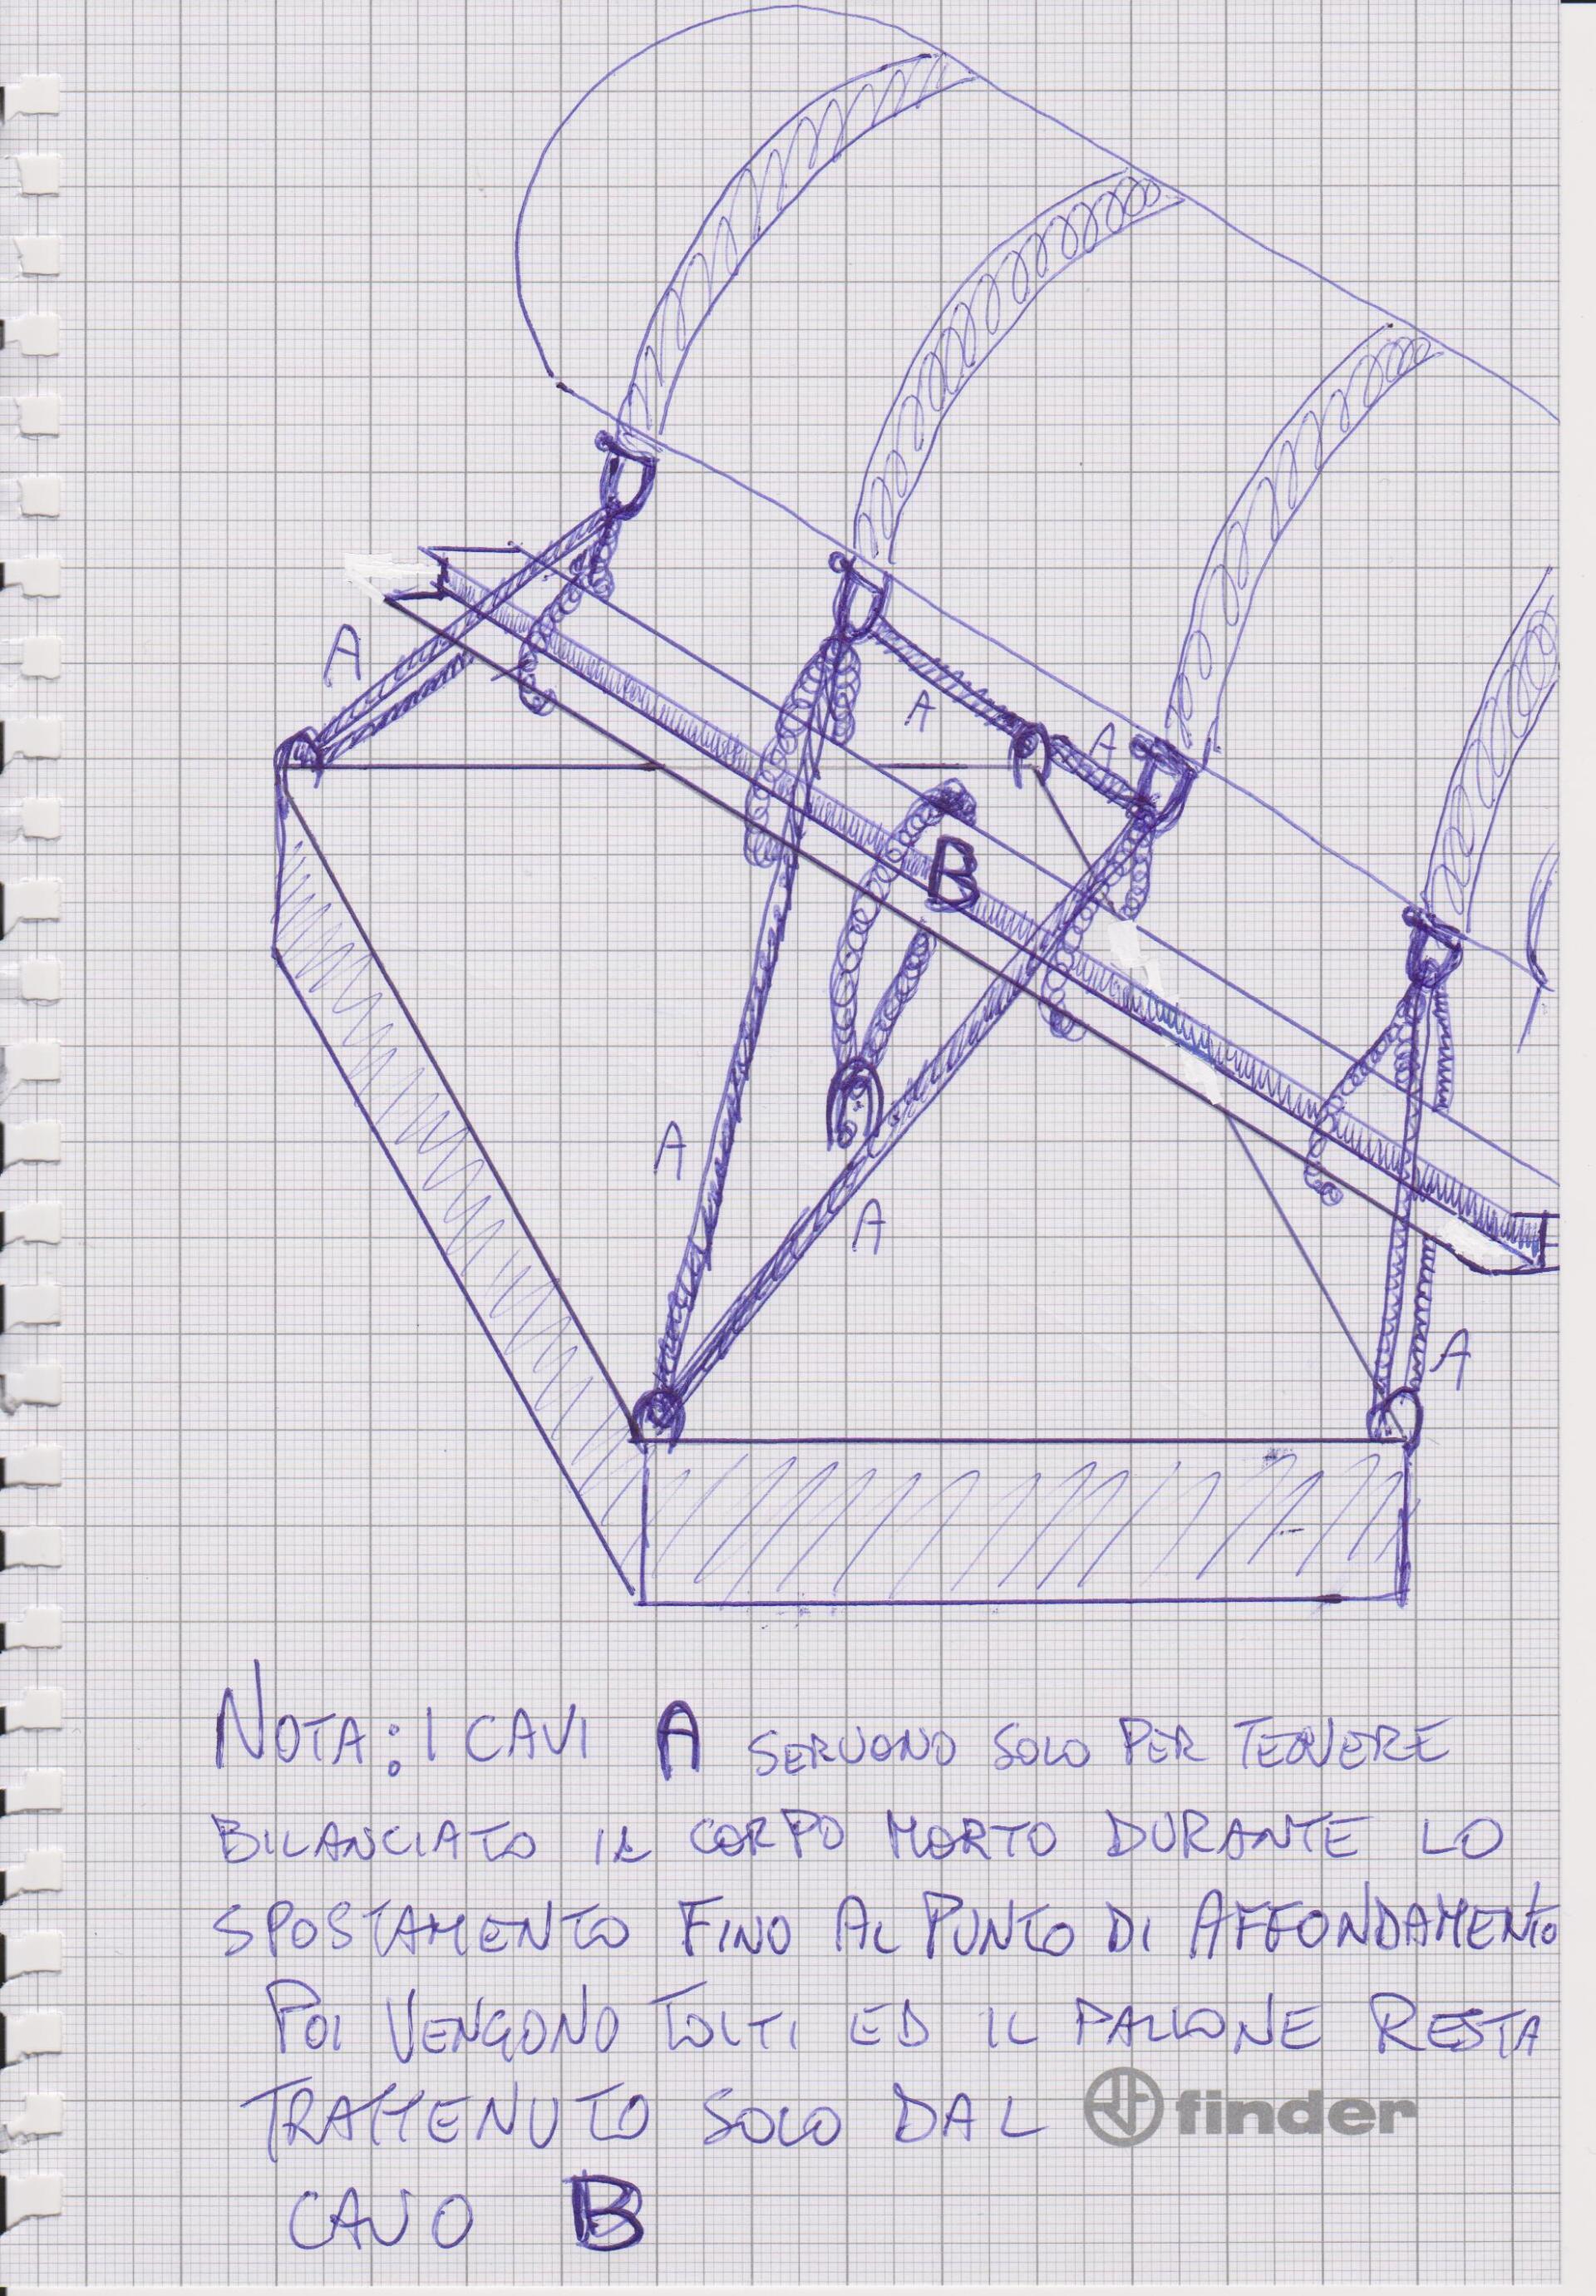 A
A
A
B
A
A
A
NOTA: I CAVI A SERVONO SOLO PER TENERE
BILANCIATO IL CORPO MORTO DURANTE LO
SPOSTAMENTO FINO AL PUNTO DI AFFONDAMENTO
POI VENGONO TOLTI ED IL PALLONE RESTA
TRATTENUTO SOLO DAL finder
CAVO B